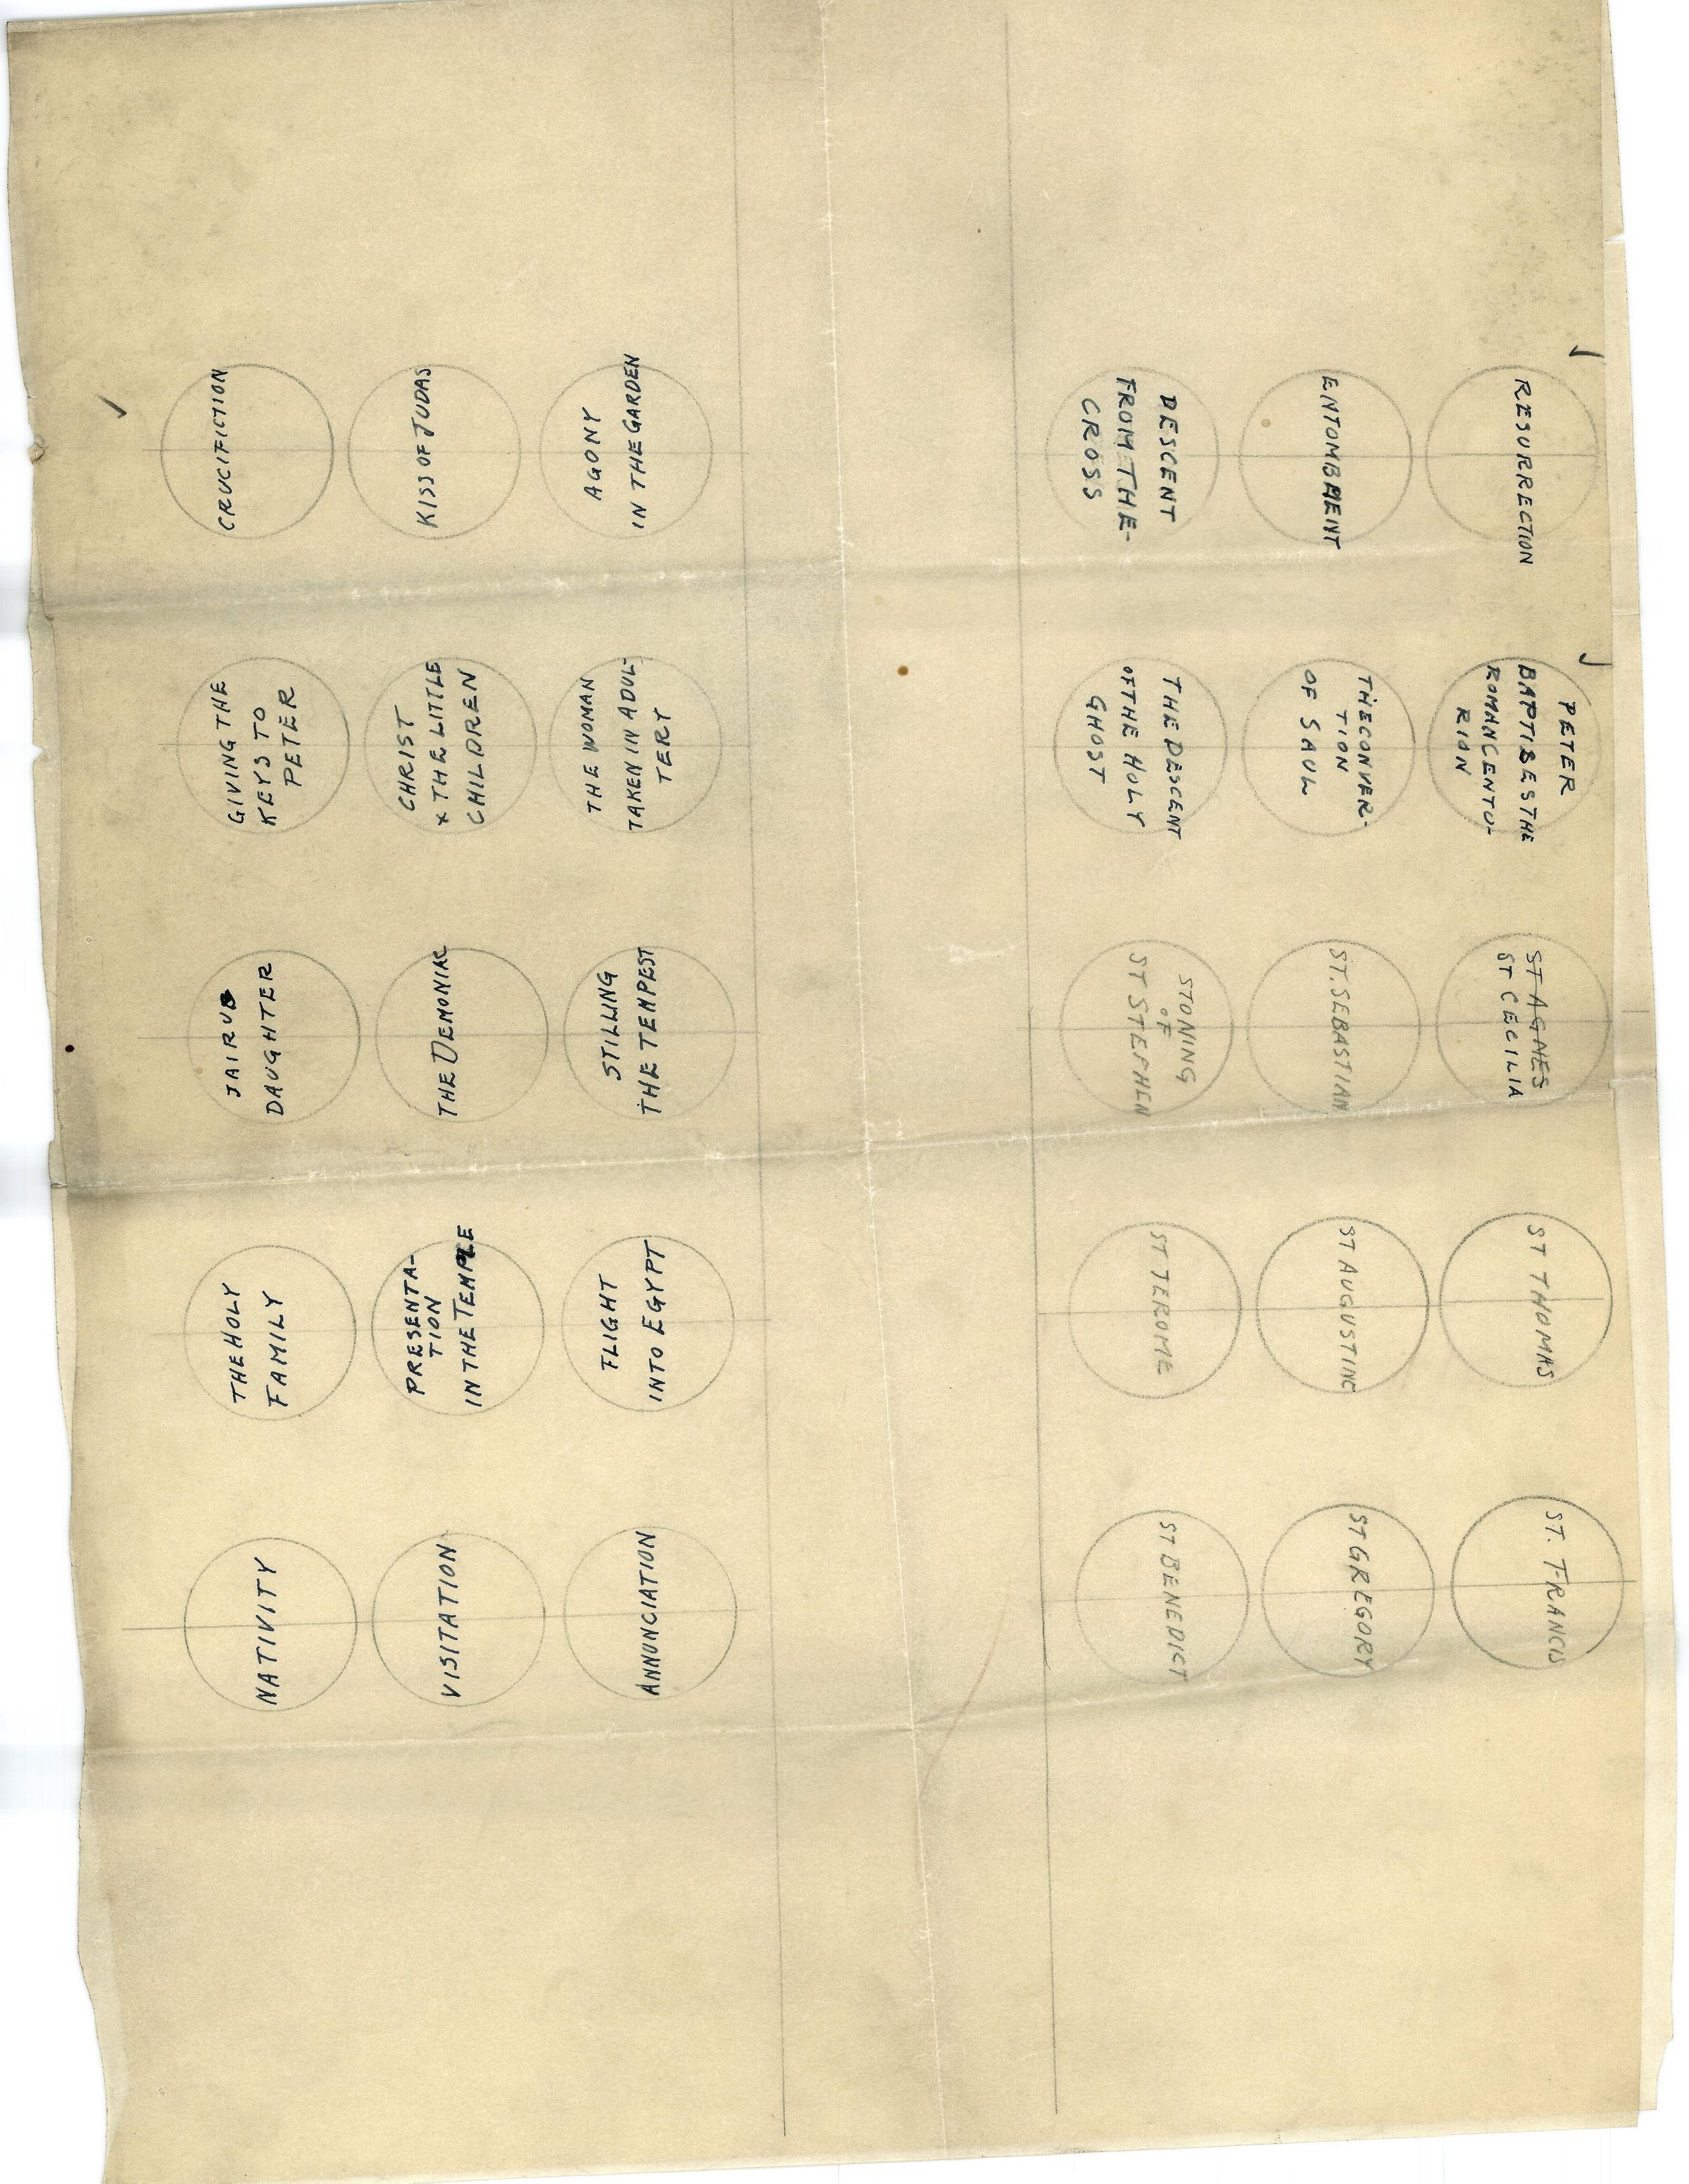 CRUCIFICTION
KISS OF JUDAS
AGONY
IN THE GARDEN
GIVING THE
KEYS TO
PETER
CHRIST
& THE LITTLE
CHILDREN
THE WOMAN
TAKEN IN ADUL-
TERY
JAIRUS
DAUGHTER
THE DEMONIAC
STILLING
THE TEMPEST
THE HOLY
FAMILY
PRESENTA-
TION
IN THE TEMPLE
FLIGHT
INTO EGYPT
NATIVITY
VISITATION
ANNUNCIATION
DESCENT
FROM THE-
CROSS
ENTOMBMENT
RESURRECTION
THE DESCENT
OF THE HOLY
GHOST
THE CONVER-
TION
OF SAUL
PETER
BAPTISES THE
ROMAN CENTU-
RION
STONING
OF
ST STEPHEN
ST. SEBASTIAN
ST AGNES
ST CECILIA
ST JEROME
ST AUGUSTINE
ST THOMAS
ST BENEDICT
ST GREGORY
ST. FRANCIS